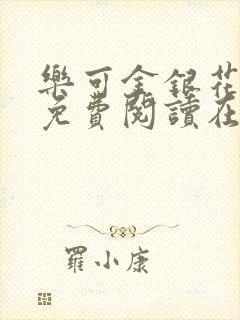 樂可金銀花
免費閱讀在
羅小康